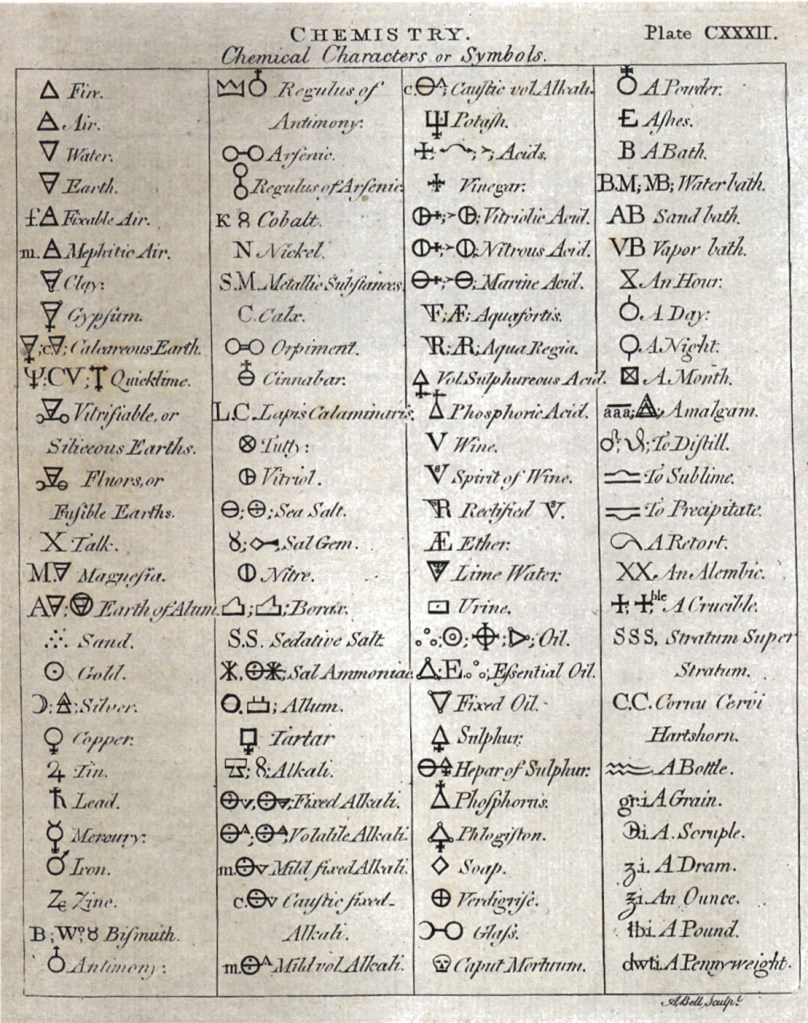 CHEMISTRY.
Plate CXXXII.
Chemical Characters or Symbols.
Fire.
Air.
Water.
Earth.
£ Fixable Air.
m. Mephitic Air.
Clay.
Gypsum.
; c ; Calcareous Earth.
Ψ; CV; Quicklime.
Vitrifiable, or
Siliceous Earths.
Fluors, or
Fusible Earths.
X Talk.
M. Magnesia.
A ; Earth of Alum.
Sand.
☉ Gold.
☽; Silver.
♀ Copper.
♃ Tin.
♄ Lead.
☿ Mercury.
♂ Iron.
Z Zinc.
B; W; ♉ Bismuth.
♁ Antimony.
♁ Regulus of
Antimony.
Arsenic.
Regulus of Arsenic.
K 8 Cobalt.
N Nickel.
S.M. Metallic Substances.
C. Calx.
Orpiment.
Cinnabar.
L.C. Lapis Calaminaris.
⊗ Tutty.
Vitriol.
⊖; ⊕; Sea Salt.
♉; Sal Gem.
Nitre.
Borax.
S.S. Sedative Salt.
Sal Ammoniac.
Allum.
Tartar
8; Alkali.
Fixed Alkali.
Volatile Alkali.
m. Mild fixed Alkali.
c. Caustic fixed
Alkali.
m. Mild vol. Alkali.
c. Caustic vol. Alkali.
Potash.
Acids.
Vinegar.
Vitriolic Acid.
Nitrous Acid.
Marine Acid.
Æ; Aquafortis.
R; Aqua Regia.
Vol. Sulphureous Acid.
Phosphoric Acid.
V Wine.
Spirit of Wine.
Rectified V.
Æ Ether.
Lime Water.
Urine.
Oil.
E; Essential Oil.
Fixed Oil.
Sulphur.
Hepar of Sulphur.
Phosphorus.
Phlogiston.
Soap.
⊕ Verdigrise.
Glass.
Caput Mortuum.
A Powder.
E Ashes.
B A Bath.
B.M; MB; Water bath.
AB Sand bath.
VB Vapor bath.
An Hour.
A Day.
A Night.
A Month.
aaa; Amalgam.
To Distill.
To Sublime.
To Precipitate.
A Retort.
XX. An Alembic.
ble A Crucible.
SSS, Stratum Super
Stratum.
C.C. Cornu Cervi
Hartshorn.
A Bottle.
gr.i. A Grain.
℈i. A Scruple.
ʒi. A Dram.
ʒi. An Ounce.
℔i. A Pound.
dwti. A Pennyweight.
ABell Sculpt.